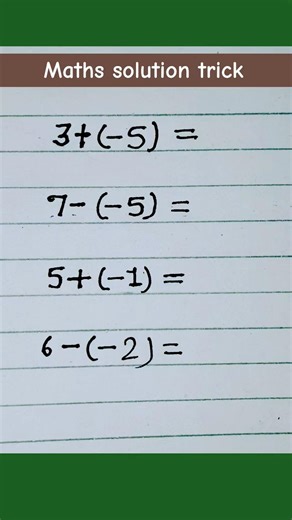 Maths solution trick
3+(-5) =
7-(-5) =
5+(-1) =
6-(-2) =